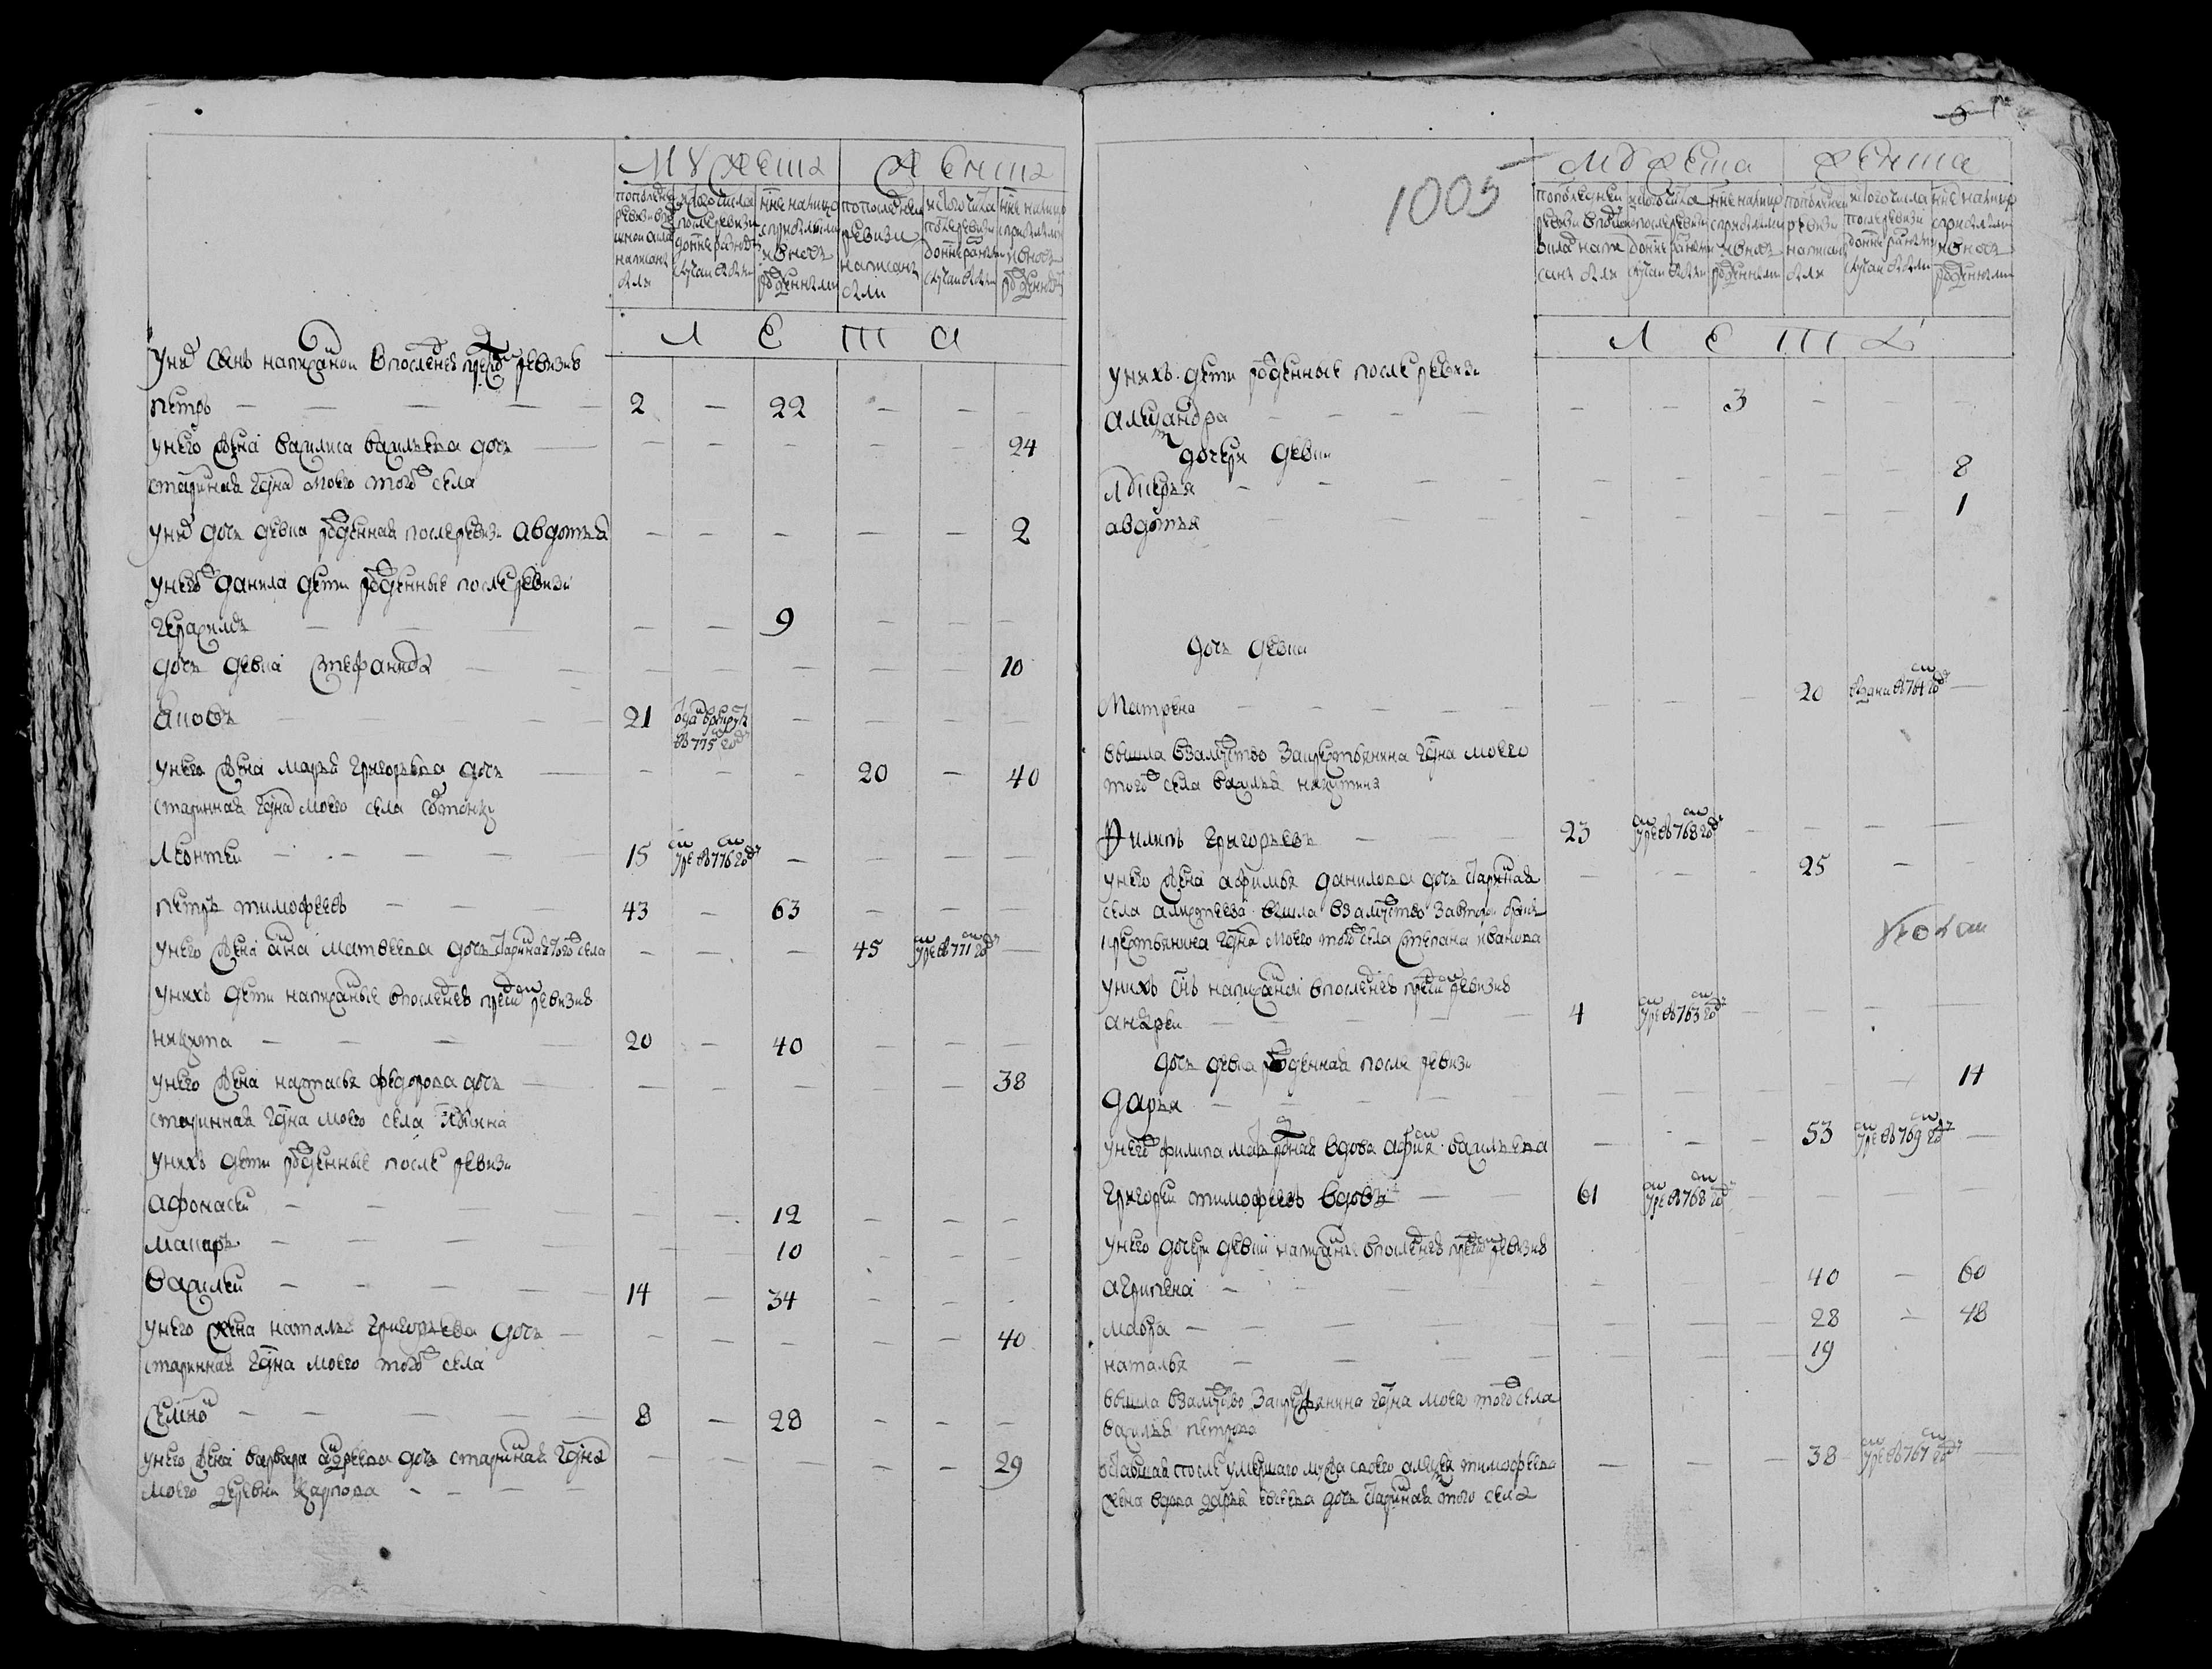 Мужеска Женска
пополедней ревизи написанъ были
исъ того числа после ревизи донне разноды случаи обыли
нне налицо сприбылыми и вновь рожденными
попоследнеи ревизи написаны были
исъ того числа после ревизи донне
нне налицо сприбылыми и вновь рожденными
Л Е Т А
уней сынъ написанои впоследнеи пред ревизие
петръ — — — — — 2 — 22 — — —
унего жена василиса васильева дочь — — — — — — 24
старинная гдна моего того села
уней дочь девка рожденная после ревизи авдотья — — — — — 2
унегож данила дети рожденные после ревизи
герасимъ — — — — — 9 — — —
дочь девка стефанида — — — — — — — — 10
яковъ — — 21 отдан врекруты в 775 году — — — —
унего жена марья григорьева дочь — — — — 20 — 40
старинная гдна моего села
леонтеи — — — — — 15 умре в 776 году — — — —
петръ тимофеевъ — — — 43 — 63 — — —
унего жена анна матвеева дочь старинная того села — — — 45 умре в 771 году —
унихъ дети написаные впоследнеи пред ревизие
никита — — — — 20 — 40 — — —
унего жена настасья федорова дочь — — — — — — 38
старинная гдна моего села
унихъ дети рожденные после ревизи
афонасеи — — — — — — 12 — — —
макаръ — — — — — 10 — — —
василеи — — — — — 14 — 34 — — —
унего жена наталья григорьева дочь — — — — — — 40
старинная гдна моего того села
семенъ — — — — — 8 — 28 — — —
унего жена варвара андреева дочь старинная гдна — — — — — 29
моего деревни карпова — — — —
1005
Мужеска Женска
пополедней ревизи
исъ того числа после ревизи донне
нне налицо сприбылыми и вновь рожденными
попоследнеи ревизи написаны были
исъ того числа после ревизи донне
нне налицо сприбылыми и вновь рожденными
Л Е Т А
унихъ дети рожденные после ревизи
александра — — — — — — 3 — — —
дочери девки
лукерья — — — — — — — — — 8
авдотья — — — — — — — — 1
дочь девка
матрена — — — — — — — — 20 выдана в 764 году —
вышла взамужство за крестьянина гдна моего
того села василья никитина
Филипъ григорьевъ — — — — 23 умре в 768 году — — — —
унего жена афимья данилова дочь старинная — — — 25 — —
села алексеева вышла взамужство завтори бракъ
крестьянина гдна моего того села степана иванова
унихъ снъ написанои впоследнеи пред ревизие
андреи — — — — — 4 умре в 763 году — — — —
дочь девка рожденная после ревизи
дарья — — — — — — — — — 14
унегож филипа мать родная вдова афимья васильева — — — 53 умре в 769 году —
григореи тимофеевъ вдовъ — — 61 умре в 768 году
унего дочери девки написаные впоследнеи пред ревизие
агрипена — — — — 40 — 60
мавра — — — — — — — — 28 — 48
наталья — — — — — — — 19
вышла взамужство закрестьянина гдна моего того села
василья петрова
оставшая после умершаго мужа своего алексея тимофеева — — — 38 умре в 767 году —
жена вдова дарья дочь старинная того села